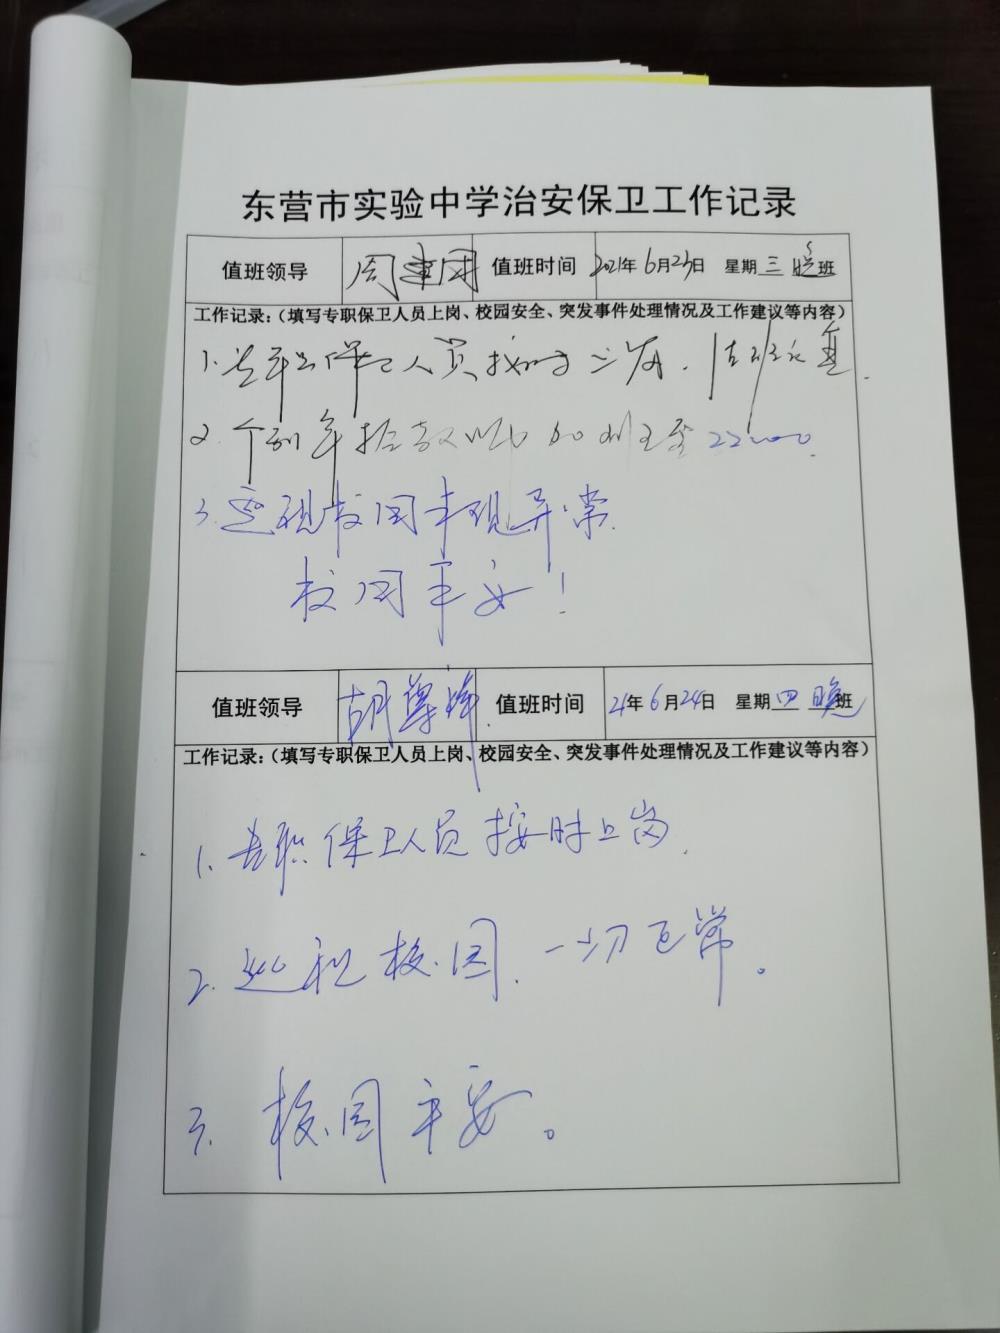 东营市实验中学治安保卫工作记录
值班领导 周建国 值班时间 2021年6月23日 星期三 晚班
工作记录:(填写专职保卫人员上岗、校园安全、突发事件处理情况及工作建议等内容)
1.专职保卫人员按时上岗.
2.个别年 至22:00.
3.巡视校园未现异常.
校园平安!
值班领导 胡 值班时间 21年6月24日 星期四 晚班
工作记录:(填写专职保卫人员上岗、校园安全、突发事件处理情况及工作建议等内容)
1.专职保卫人员按时上岗.
2.巡视校园.一切正常。
3.校园平安。